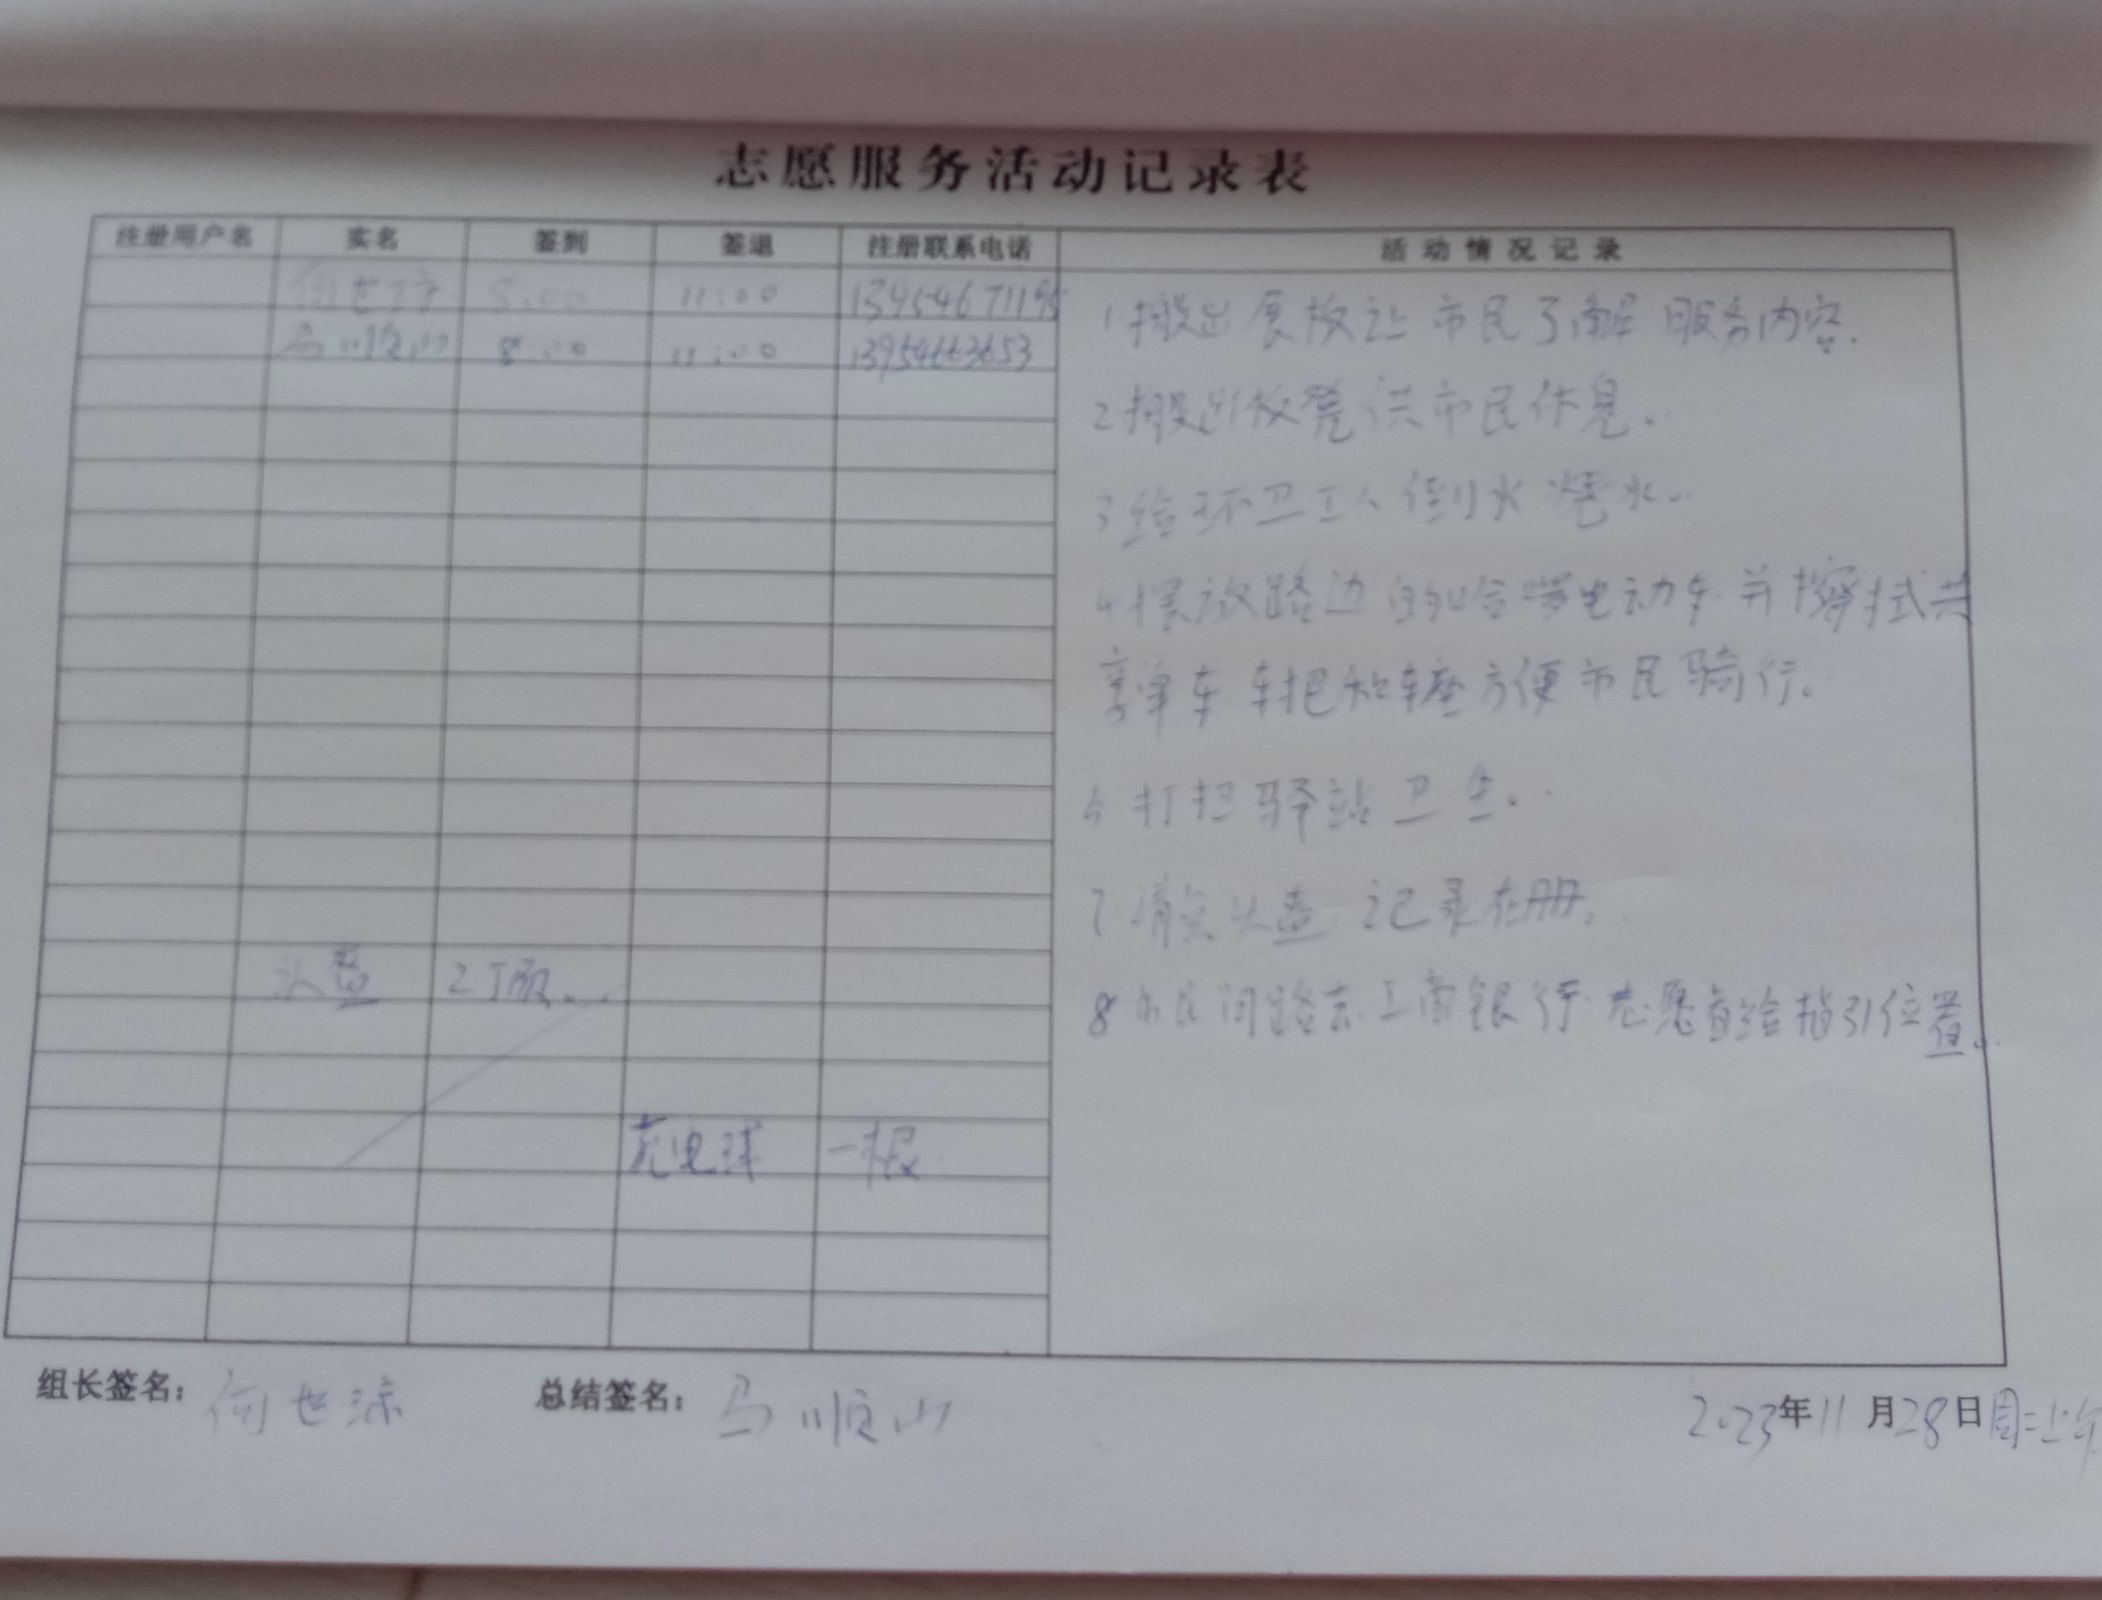 志愿服务活动记录表
注册用户名 实名 签到 签退 注册联系电话 活动情况记录
何世 8:00 11:00 13954671195
马顺山 8:00 11:00 13954663653
1搬出展板让市民了解服务内容.
2搬出板凳供市民休息.
3给环卫工人倒水烧水.
4摆放路边自行车电动车并擦拭共
享单车车把和车座方便市民骑行.
6打扫驿站卫生.
7.清点头盔 记录在册.
头盔 2顶.
8市民问路去工商银行志愿者给指引位置.
充电球 一根
组长签名：何世 总结签名：马顺山 2023年11月28日周二上午